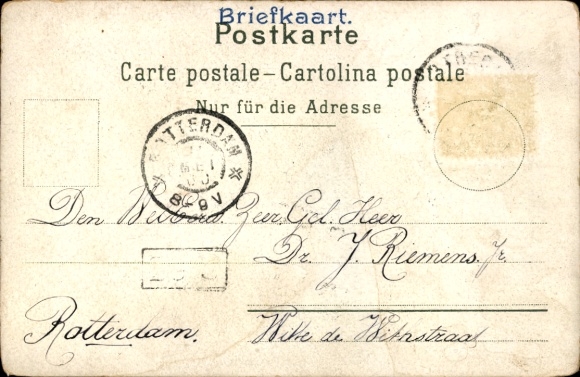 Briefkaart.
Postkarte
Carte postale – Cartolina postale
Nur für die Adresse
ROTTERDAM
8-9V
Den Weled. Zeer Gel. Heer
Dr. J. Riemens. Jr.
Rotterdam. Witte de Withstraat